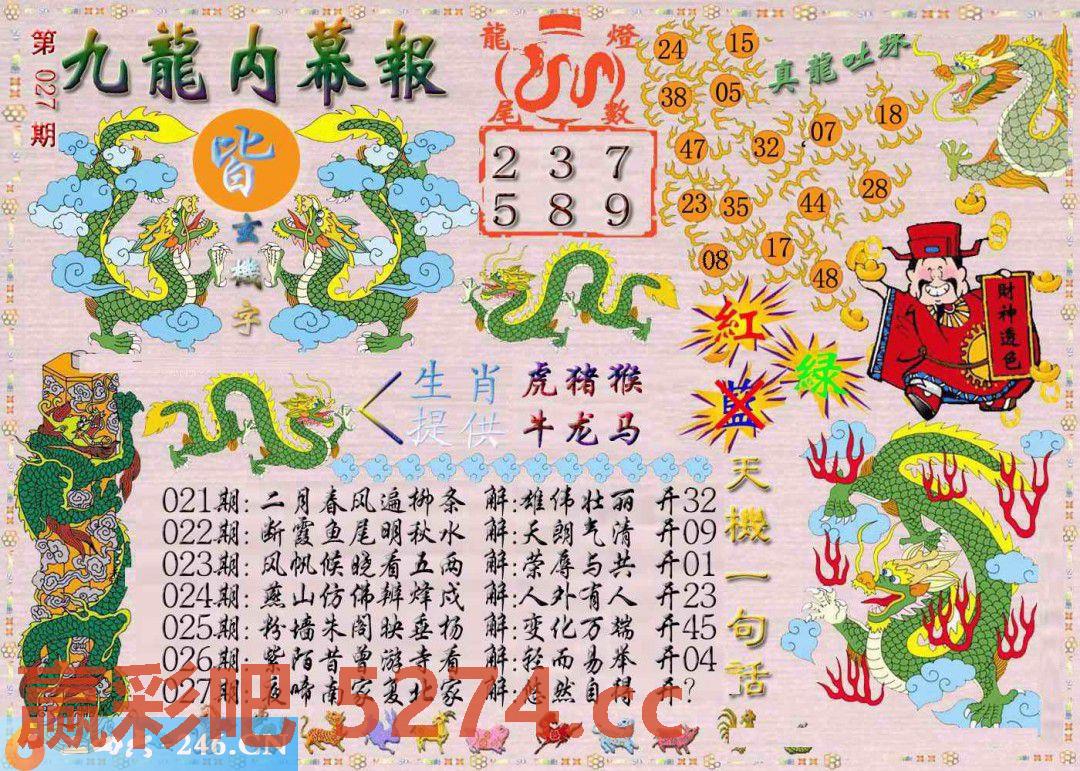 第027期
九龍内幕報
皆
玄機字
龍尾燈數
2 3 7
5 8 9
真龍吐珠
24 15
38 05
47 32 07 18
23 35 44 28
08 17 48
紅
綠
藍
財神透色
生肖提供
虎猪猴
牛龙马
天機一句話
021期:二月春风遍柳条 解:雄伟壮丽 开32
022期:断霞鱼尾明秋水 解:天朗气清 开09
023期:风帆候晓看五两 解:荣辱与共 开01
024期:燕山仿佛辩烽戍 解:人外有人 开23
025期:粉墙朱阁映垂杨 解:变化万端 开45
026期:紫陌昔曾游寺看 解:轻而易举 开04
027期:夜啼南家复北家 解:悠然自得 开?
赢彩吧 5274.cc
246.CN